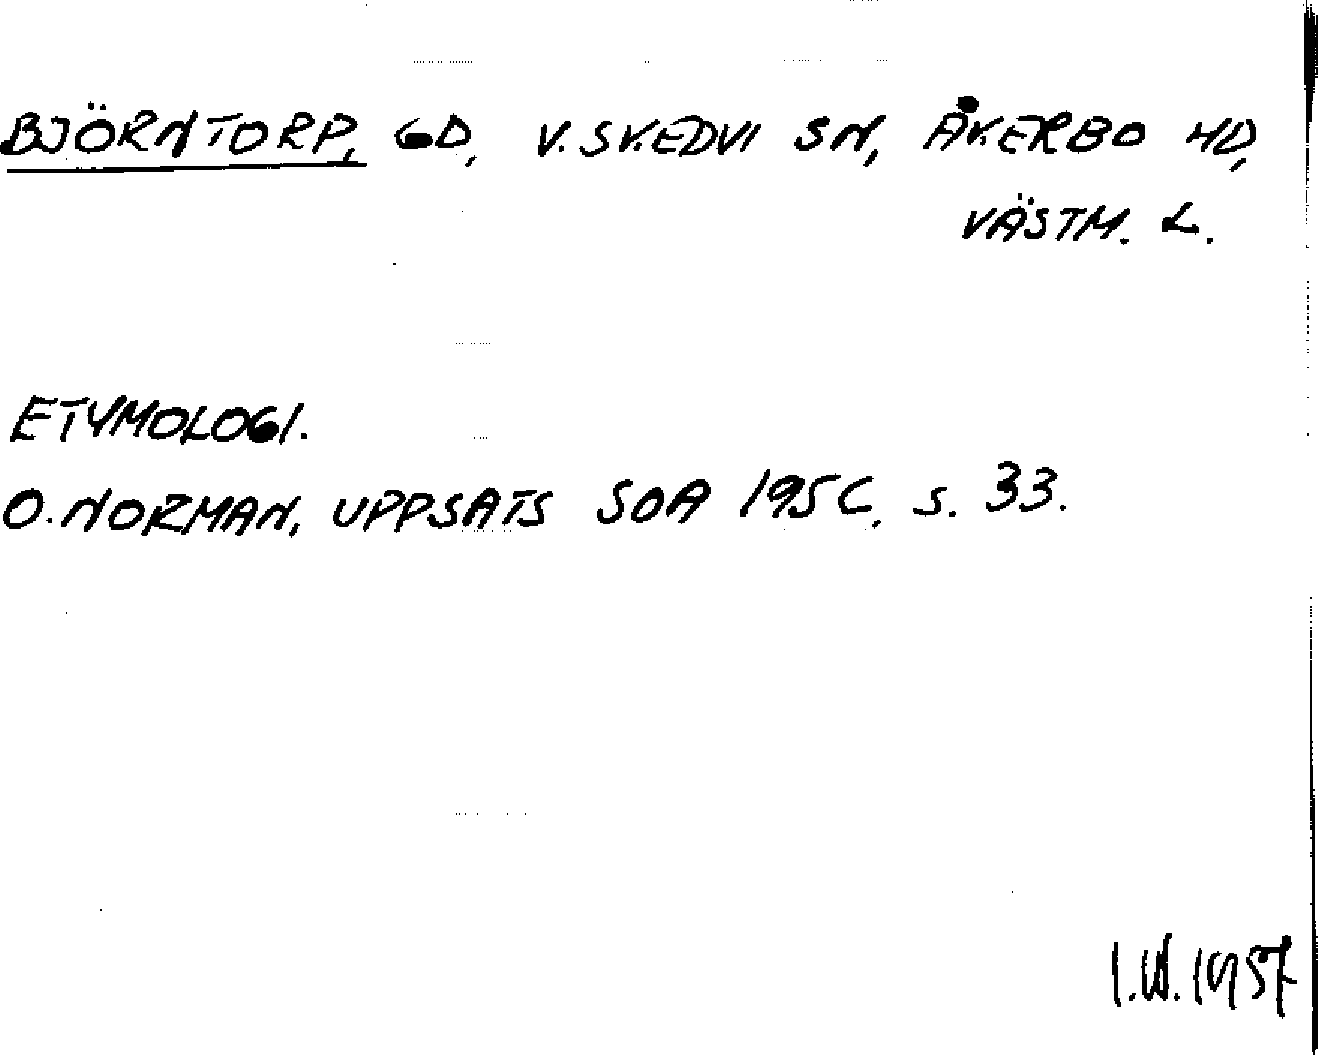 BJÖRNTORP, GD, V. SKEDVI SN, ÅKERBO HD,
VÄSTM. L.
ETYMOLOGI.
O. NORMAN, UPPSATS SOA 1956, s. 33.
I.W. 1957